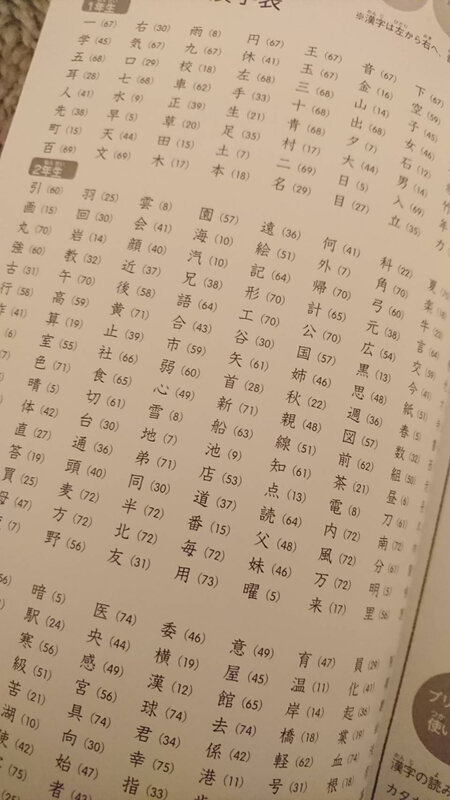 1年生
※漢字は左から右へ、
一(67) 右(30) 雨(8) 円(67) 王(67) 音(67) 下(67)
学(45) 気(67) 九(67) 休(41) 玉(67) 金(16) 空(59)
五(68) 口(29) 校(18) 左(68) 三(68) 山(14) 子(45)
耳(28) 七(68) 車(62) 手(33) 十(68) 出(68) 女(46)
人(41) 水(9) 正(39) 生(21) 青(71) 夕(7) 石(12)
先(38) 早(5) 草(20) 足(35) 村(17) 大(44) 男(14)
町(15) 天(44) 田(15) 土(14) 二(69) 日(5) 入(69)
百(69) 文(69) 木(17) 本(18) 名(29) 目(27) 立(35)
2年生
引(60) 羽(25) 雲(8) 園(57) 遠(36) 何(41) 科(22) 夏
画(15) 回(30) 会(41) 海(10) 絵(51) 外(7) 角(70) 楽
丸(70) 岩(14) 顔(40) 汽(10) 記(64) 帰(70) 弓(60) 牛
強(60) 教(32) 近(37) 兄(38) 形(70) 計(65) 元(38) 言(64)
古(31) 午(70) 後(58) 語(64) 工(70) 公(70) 広(54) 交(59)
行(58) 高(59) 黄(71) 合(43) 谷(30) 国(57) 黒(13) 今(41)
作(41) 算(19) 止(39) 市(59) 矢(61) 姉(46) 思(48) 紙(51)
(6) 室(55) 社(66) 弱(60) 首(28) 秋(22) 週(36) 春(5)
色(71) 食(65) 心(49) 新(71) 親(48) 図(57) 数(32)
晴(5) 切(61) 雪(8) 船(63) 線(51) 前(62) 組(50)
体(42) 台(30) 地(7) 池(9) 知(61) 茶(21) 昼(6)
直(27) 通(36) 弟(71) 店(53) 点(13) 電(8) 刀(61)
答(19) 頭(40) 同(30) 道(37) 読(64) 内(72) 南(72)
買(25) 麦(72) 半(72) 番(15) 父(48) 風(72) 分(61)
母(47) 方(72) 北(72) 毎(72) 妹(46) 万(72) 明(5)
野(56) 友(31) 用(73) 曜(5) 来(17) 里(56)
暗(5) 医(74) 委(46) 意(49) 育(47) 員(29)
駅(24) 央(44) 横(19) 屋(45) 温(11) 化(41)
寒(56) 感(49) 漢(12) 館(65) 岸(14) 起(36)
級(51) 宮(56) 球(74) 去(74) 橋(18) 業(19)
苦(21) 具(74) 君(34) 係(42) 軽(62) 血(74)
湖(10) 向(30) 幸(75) 港(11) 号(31) 根(18)
使(42) 始(47) 指(33) 歯
者(43)
プリ
使い
漢字の読み
カタ